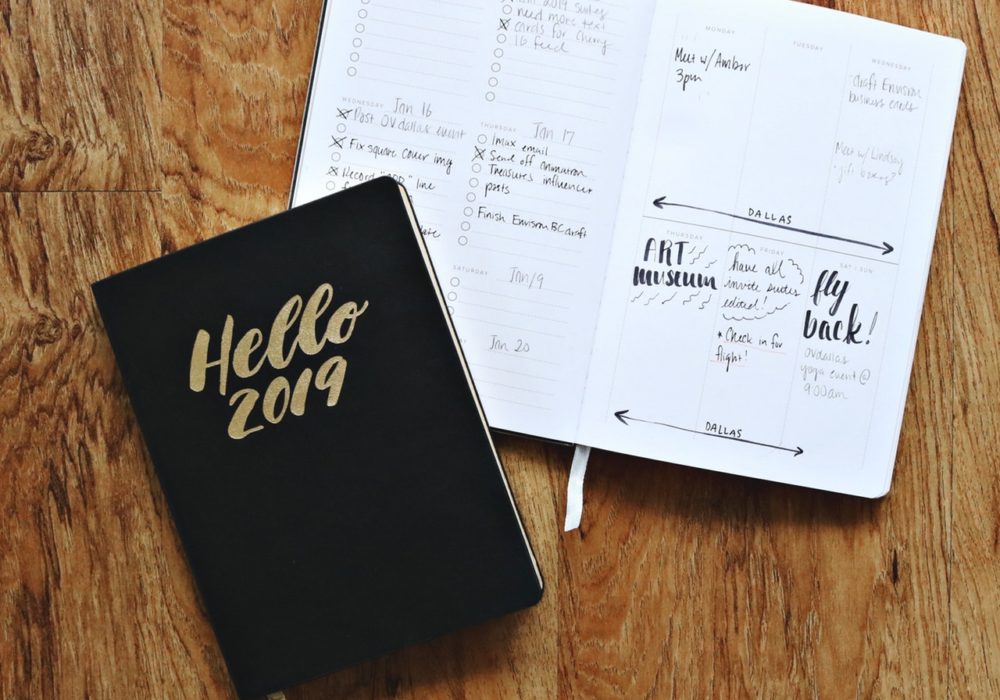 Hello
2019
need more text
cards for Cherry
16 feed
WEDNESDAY Jan 16
Post OVdallas event
Fix square cover img
Record line
THURSDAY Jan 17
Imax email
Send off animation
Treasures influencer
posts
Finish Envision BC draft
SATURDAY Jan 19
Jan 20
MONDAY
Meet w/ Amber
3pm
TUESDAY
WEDNESDAY
draft Envision
business cards
Meet w/ Lindsay
"gift boxes?"
DALLAS
THURSDAY
ART
museum
FRIDAY
have all
invite suites
edited!
* Check in for
flight!
SAT | SUN
fly
back!
OVdallas
yoga event @
9:00am
DALLAS